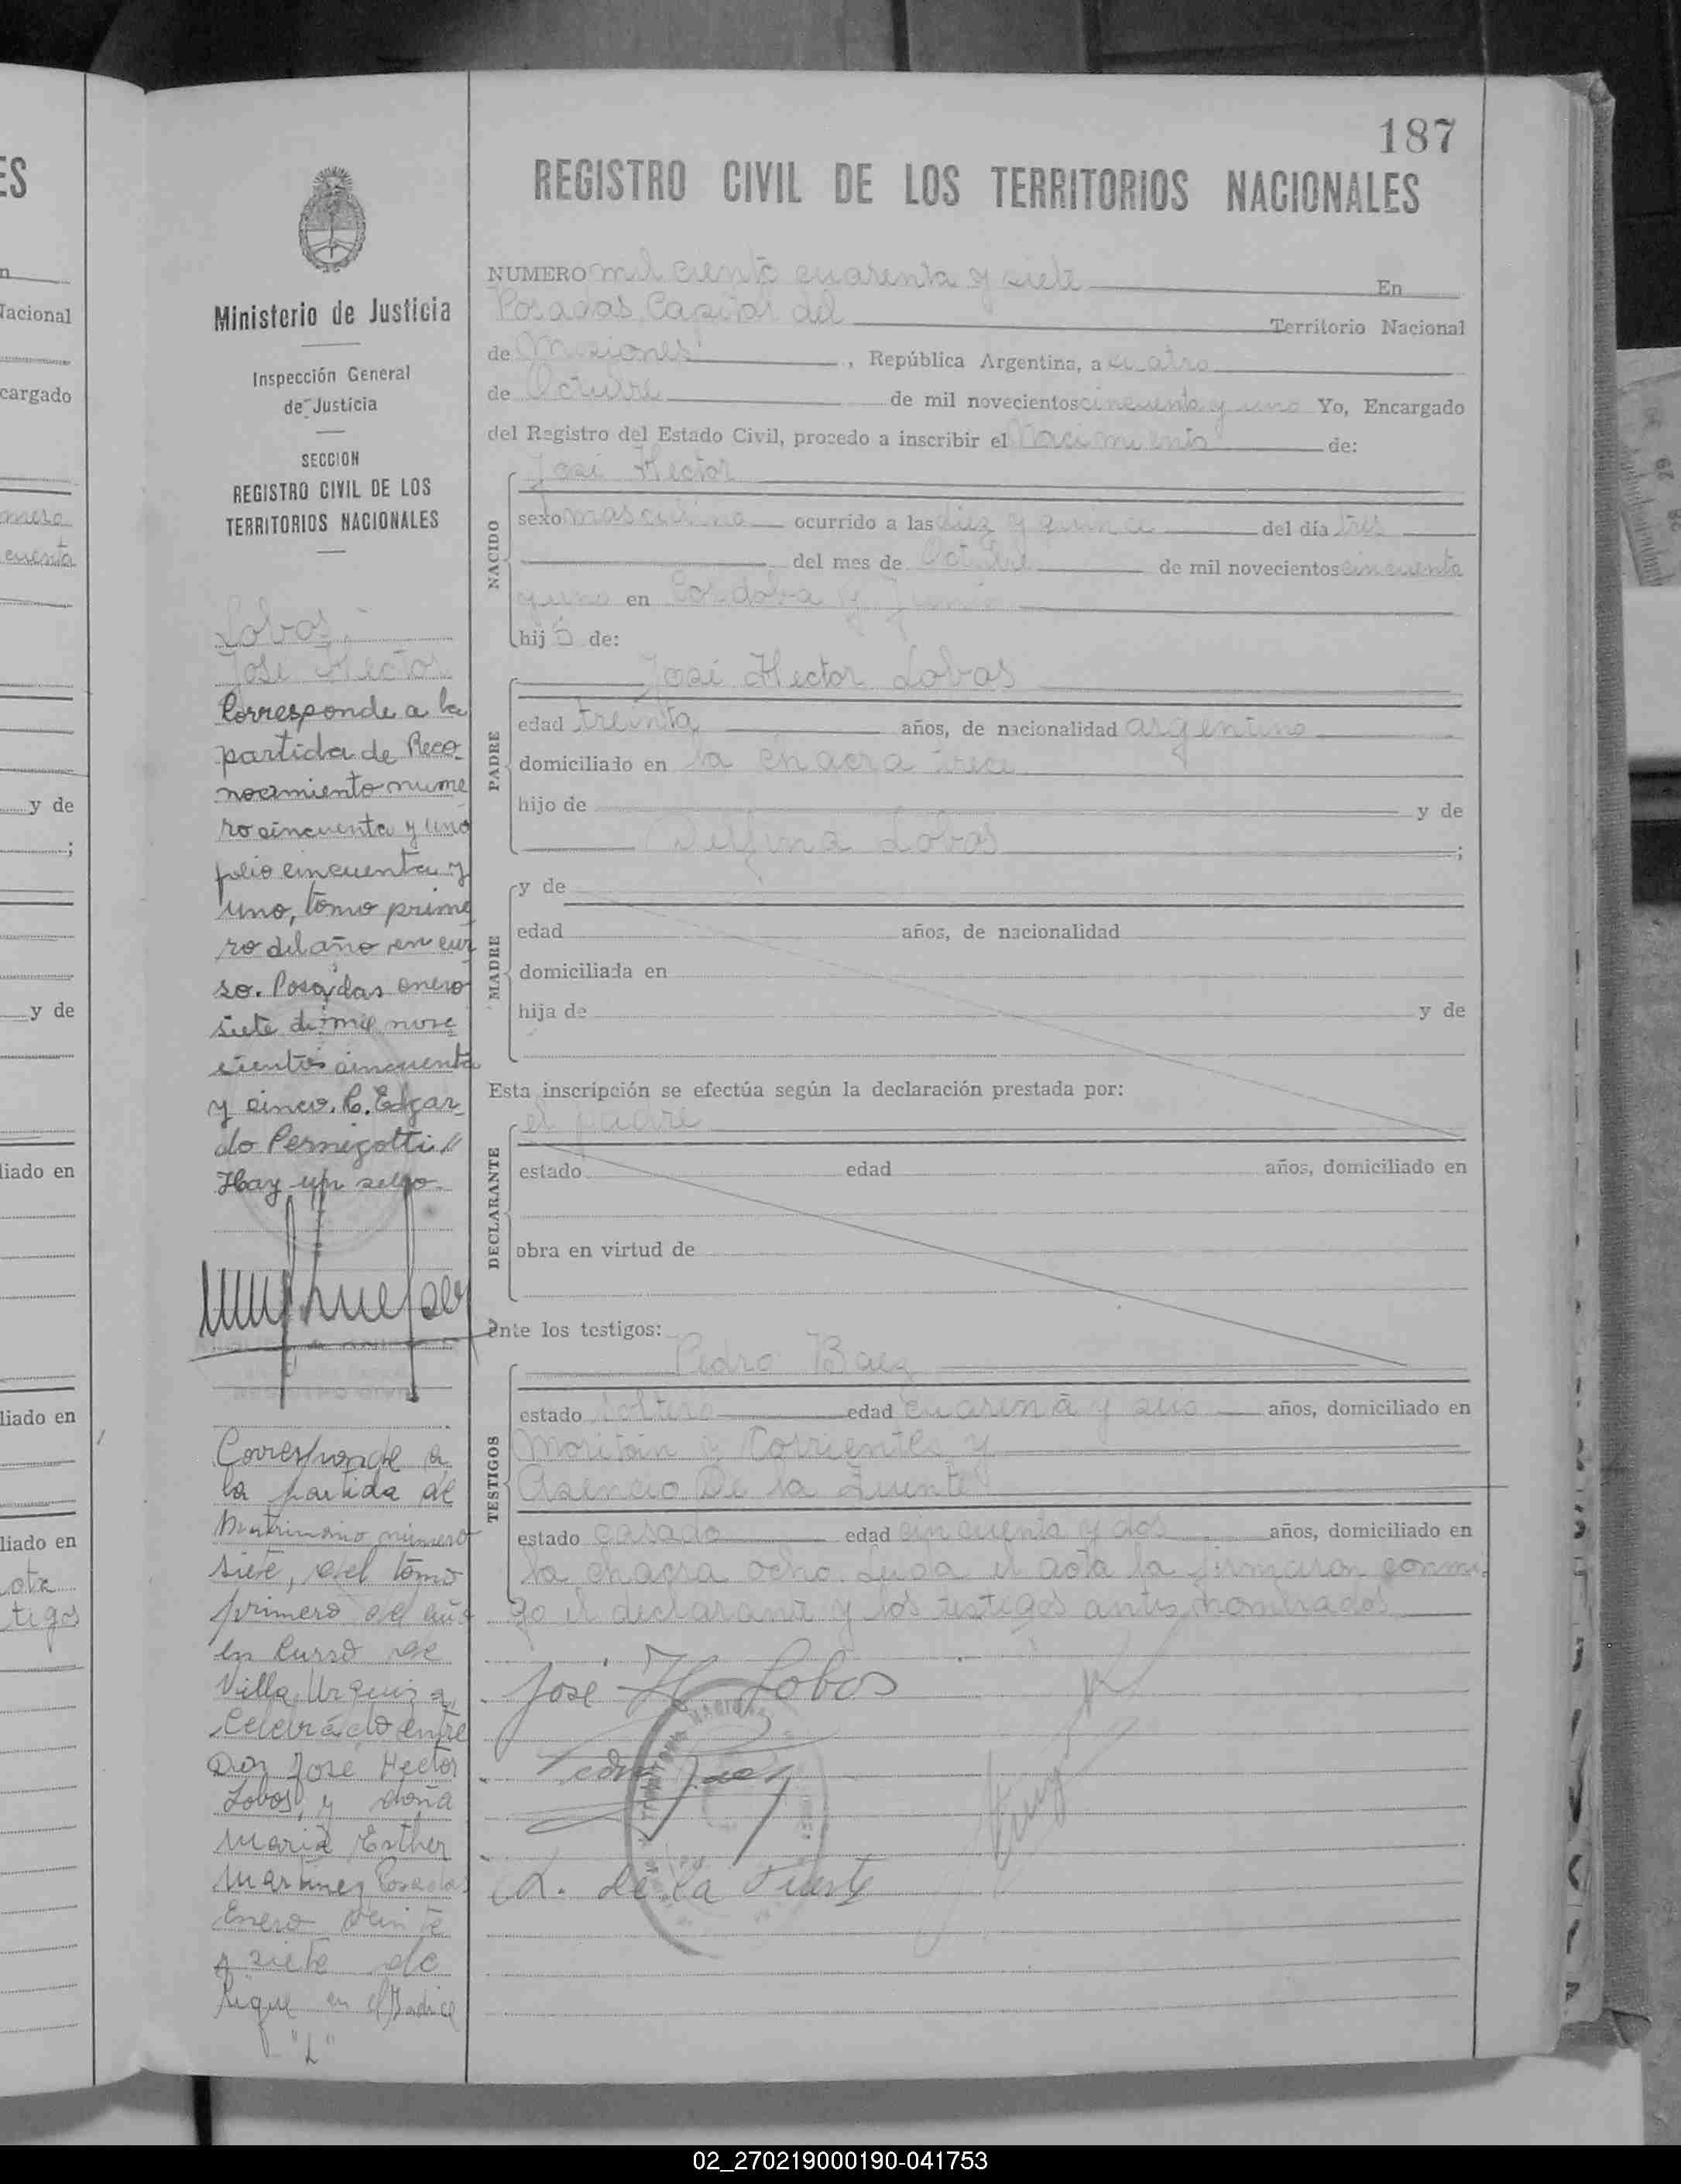 187
REGISTRO CIVIL DE LOS TERRITORIOS NACIONALES
Ministerio de Justicia
Inspección General
de Justicia
SECCION
REGISTRO CIVIL DE LOS
TERRITORIOS NACIONALES
Lobos.
José Hector
Corresponde a la
partida de Reco-
nocimiento nume
ro cincuenta y uno
folio cincuenta y
uno, tomo prime
ro del año en cur
so. Posadas enero
siete de mil nove
cientos cincuenta
y cinco. C. Edgar-
do Pernigotti //
Hay un sello.
Corresponde a
la partida de
Matrimonio número
siete, del tomo
primero del año
en curso de
Villa Urquiza,
celebrado entre
Don José Hector
Lobos, y doña
María Esther
Martinez Posadas
Enero veinte
y siete de
Sigue en el Indice
"L"
NUMERO mil ciento cuarenta y siete En
Posadas Capital del Territorio Nacional
de Misiones, República Argentina, a cuatro
de Octubre de mil novecientos cincuenta y uno Yo, Encargado
del Registro del Estado Civil, procedo a inscribir el Nacimiento de:
José Hector
NACIDO
sexo masculino ocurrido a las diez y quince del día tres
del mes de Octubre de mil novecientos cincuenta
y uno en Cordoba y Junin
hijo de:
José Hector Lobos
PADRE
edad treinta años, de nacionalidad argentino
domiciliado en la chacra trece
hijo de y de
Delfina Lobos ;
MADRE
y de
edad años, de nacionalidad
domiciliada en
hija de y de
Esta inscripción se efectúa según la declaración prestada por:
el padre
DECLARANTE
estado edad años, domiciliado en
obra en virtud de
ante los testigos:
Pedro Baez
TESTIGOS
estado soltero edad cuarenta y seis años, domiciliado en
Moritan y Corrientes y
Asencio De la Fuente
estado casado edad cincuenta y dos años, domiciliado en
la chacra ocho. Leida el acta la firmaron conmi
go el declarante y los testigos antes nombrados
José H Lobos
Pedro Baez
A. de la Fuente
ES
n
Nacional
cargado
mero
cuenta
y de
;
y de
liado en
liado en
liado en
tigos
02_270219000190-041753